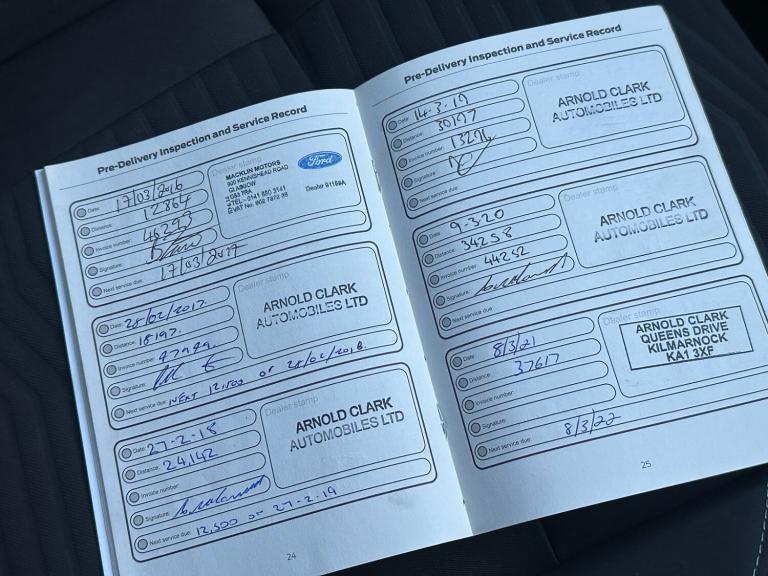 Pre-Delivery Inspection and Service Record
Date: 17/03/2016
Distance: 12864
Invoice number: 46293
Signature:
Next service due: 17/03/2017
Dealer stamp
MACKLIN MOTORS
GLASGOW
TEL - 0141 880 3141
Ford
Date: 28/02/2017.
Distance: 18197.
Invoice number: 97949.
Signature:
Next service due: NEXT 12,500 or 28/02/2018.
Dealer stamp
ARNOLD CLARK
AUTOMOBILES LTD
Date: 27-2-18
Distance: 24,142
Invoice number:
Signature:
Next service due: 12,500 or 27-2-19
Dealer stamp
ARNOLD CLARK
AUTOMOBILES LTD
24
Pre-Delivery Inspection and Service Record
Date: 14-3-19
Distance: 30197
Invoice number: 13296
Signature:
Next service due:
Dealer stamp
ARNOLD CLARK
AUTOMOBILES LTD
Date: 9-3-20
Distance: 34258
Invoice number: 44252
Signature:
Next service due:
Dealer stamp
ARNOLD CLARK
AUTOMOBILES LTD
Date: 8/3/21
Distance: 37617
Invoice number:
Signature:
Next service due: 8/3/22
Dealer stamp
ARNOLD CLARK
QUEENS DRIVE
KILMARNOCK
KA1 3XF
25